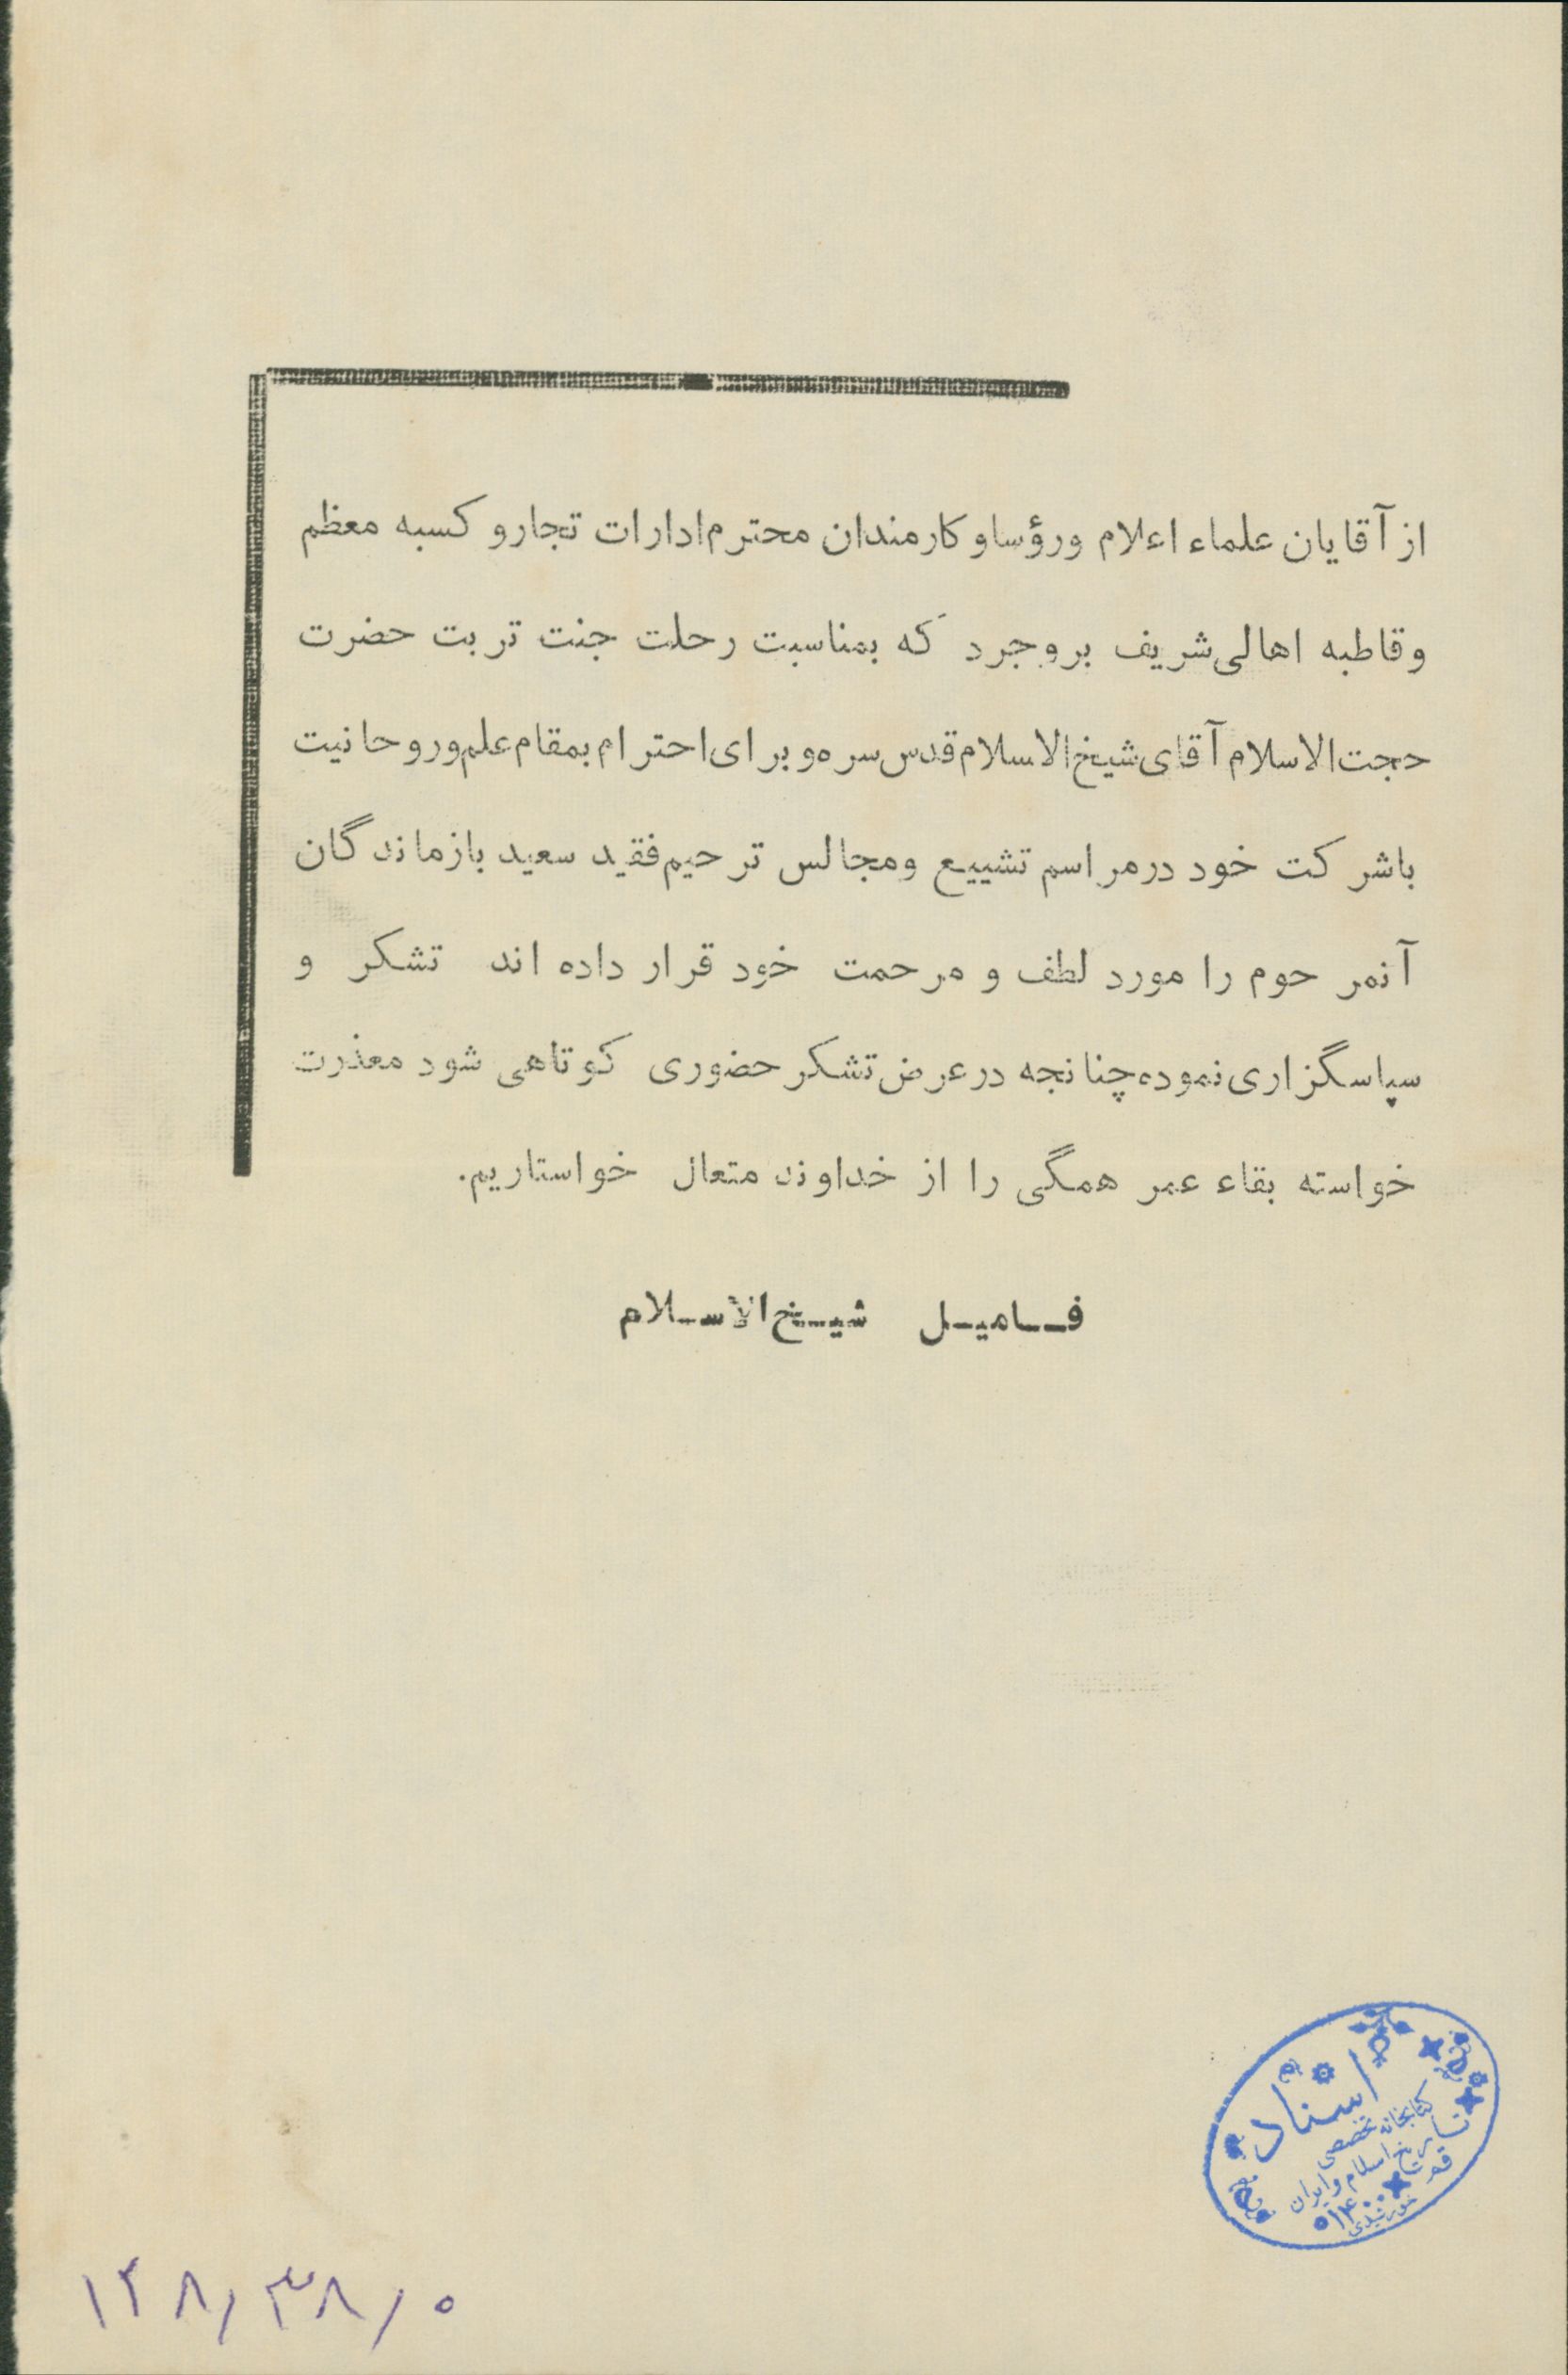 از آقایان علماء اعلام ورؤساو کارمندان محترم ادارات تجارو کسبه معظم
وقاطبه اهالی شریف بروجرد که بمناسبت رحلت جنت تربت حضرت
حجت الاسلام آقای شیخ الاسلام قدس سره و برای احترام بمقام علم وروحانیت
باشرکت خود درمراسم تشییع ومجالس ترحیم فقید سعید بازماندگان
آنمرحوم را مورد لطف و مرحمت خود قرار داده اند تشکر و
سپاسگزاری نموده چنانجه درعرض تشکر حضوری کوتاهی شود معذرت
خواسته بقاء عمر همگی را از خداوند متعال خواستاریم.
فامیل شیخ الاسلام
اسناد
کتابخانه تخصصی
تاریخ اسلام و ایران
قم
۱۴۰۰ خورشیدی
۱۲۸/۳۸/۰